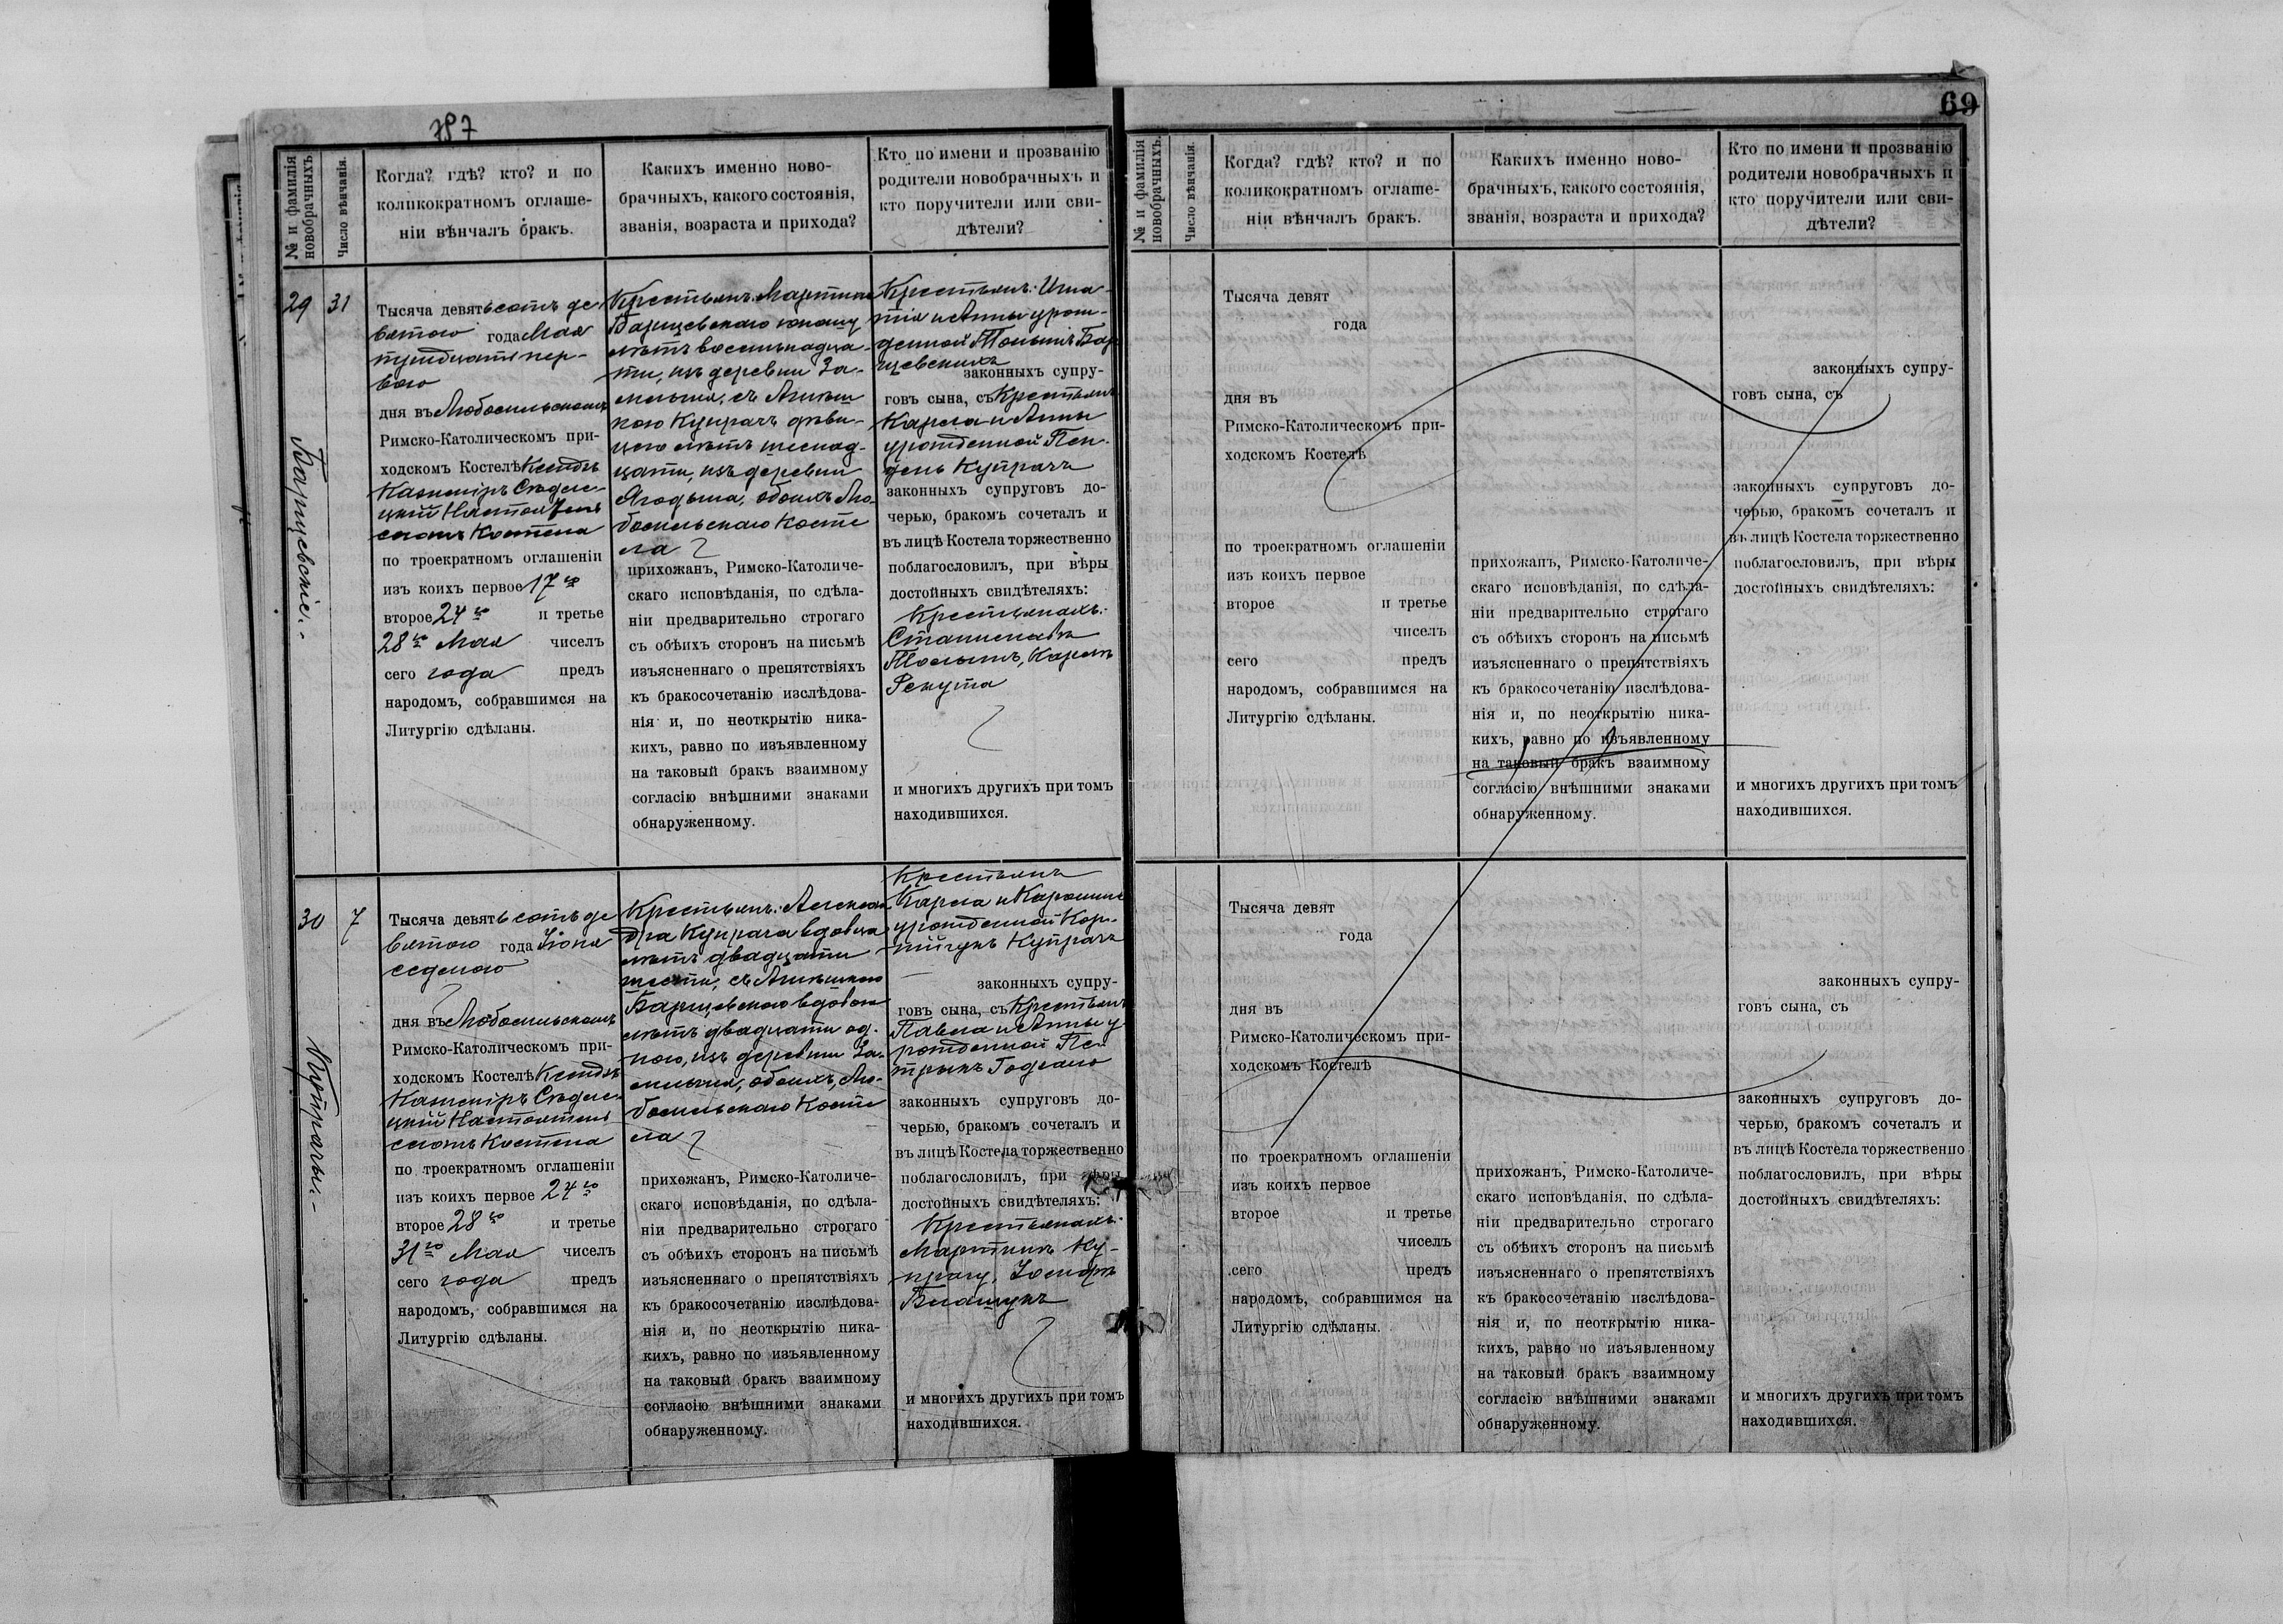 787
№ и фамилія новобрачныхъ
Число вѣнчанія.
Когда? гдѣ? кто? и по
коликократномъ оглаше-
ніи вѣнчалъ бракъ.
Какихъ именно ново-
брачныхъ, какого состоянія,
званія, возраста и прихода?
Кто по имени и прозванію
родители новобрачныхъ и
кто поручители или сви-
дѣтели?
29
31
Барщевскіе.-
Тысяча девятьсотъ де-
вятого года Мая
тридцать пер-
вого
дня въ Любосильскомъ
Римско-Католическомъ при-
ходскомъ Костелѣ Ксендзъ
Казимірь Сѣдле-
цкій Настоятель
сногъ Костела
по троекратномъ оглашеніи
изъ коихъ первое 17го
второе 24го и третье
28го Мая чиселъ
сего года предъ
народомъ, собравшимся на
Литургію сдѣланы.
Крестьянъ: Мартина
Барщевскаго юношу
лѣтъ восемнадца-
ти, изъ деревни За-
мельня, съ Агнѣш
кою Купрачъ дѣви-
цею лѣтъ шеснад-
цати, изъ деревни
Ягодына, обоихъ Лю-
босильскаго Косте
ла
прихожанъ, Римско-Католиче-
скаго исповѣданія, по сдѣла-
ніи предварительно строгаго
съ обѣихъ сторонъ на письмѣ
изъясненнаго о препятствіяхъ
къ бракосочетанію изслѣдова-
нія и, по неоткрытію ника-
кихъ, равно по изъявленному
на таковый бракъ взаимному
согласію внѣшними знаками
обнаруженному.
Крестьянъ: Игна-
тія и Анны урож-
денной Толышъ Бар
щевскихъ
законныхъ супру-
говъ сына, съ Крестьянъ
Карла и Анны
урожденной Пен-
день Купрачъ
законныхъ супруговъ до-
черью, бракомъ сочеталъ и
въ лицѣ Костела торжественно
поблагословилъ, при вѣры
достойныхъ свидѣтеляхъ:
Крестьянахъ:
Станиславъ
Толышъ, Карлъ
Рекута
и многихъ другихъ при томъ
находившихся.
30
7
Купрачы.-
Тысяча девятьсотъ де
вятого года Іюня
седмого
дня въ Любосильскомъ
Римско-Католическомъ при-
ходскомъ Костелѣ Ксендзъ
Казимірь Сѣдле-
цкій Настоятель
сногъ Костела
по троекратномъ оглашеніи
изъ коихъ первое 24го
второе 28го и третье
31го Мая чиселъ
сего года предъ
народомъ, собравшимся на
Литургію сдѣланы.
Крестьянъ: Алексан
дра Купрача вдовца
лѣтъ двадцати
шести, съ Агнѣшкою
Барщевскою вдовою
лѣтъ двадцати од-
ного, изъ деревни За-
мельня, обоихъ Лю-
босильскаго Косте
ла
прихожанъ, Римско-Католиче-
скаго исповѣданія, по сдѣла-
ніи предварительно строгаго
съ обѣихъ сторонъ на письмѣ
изъясненнаго о препятствіяхъ
къ бракосочетанію изслѣдова-
нія и, по неоткрытію ника-
кихъ, равно по изъявленному
на таковый бракъ взаимному
согласію внѣшними знаками
обнаруженному.
Крестьянъ
Карла и Каролины
урожденной Кор-
Купрачъ
законныхъ супру-
говъ сына, съ Крестьянъ
Павла и Анны у
рожденной Пе-
трыкъ Годлано
законныхъ супруговъ до-
черью, бракомъ сочеталъ и
въ лицѣ Костела торжественно
поблагословилъ, при вѣры
достойныхъ свидѣтеляхъ:
Крестьянахъ:
Мартинъ Ку-
прачу, Іосифъ
Блашукъ
и многихъ другихъ при томъ
находившихся.
69
№ и фамилія новобрачныхъ.
Число вѣнчанія.
Когда? гдѣ? кто? и по
коликократномъ оглаше-
ніи вѣнчалъ бракъ.
Какихъ именно ново-
брачныхъ, какого состоянія,
званія, возраста и прихода?
Кто по имени и прозванію
родители новобрачныхъ и
кто поручители или сви-
дѣтели?
Тысяча девят
года
дня въ
Римско-Католическомъ при-
ходскомъ Костелѣ
по троекратномъ оглашеніи
изъ коихъ первое
второе и третье
чиселъ
сего предъ
народомъ, собравшимся на
Литургію сдѣланы.
прихожанъ, Римско-Католиче-
скаго исповѣданія, по сдѣла-
ніи предварительно строгаго
съ обѣихъ сторонъ на письмѣ
изъясненнаго о препятствіяхъ
къ бракосочетанію изслѣдова-
нія и, по неоткрытію ника-
кихъ, равно по изъявленному
на таковый бракъ взаимному
согласію внѣшними знаками
обнаруженному.
законныхъ супру-
говъ сына, съ
законныхъ супруговъ до-
черью, бракомъ сочеталъ и
въ лицѣ Костела торжественно
поблагословилъ, при вѣры
достойныхъ свидѣтеляхъ:
и многихъ другихъ при томъ
находившихся.
Тысяча девят
года
дня въ
Римско-Католическомъ при-
ходскомъ Костелѣ
по троекратномъ оглашеніи
изъ коихъ первое
второе и третье
чиселъ
сего предъ
народомъ, собравшимся на
Литургію сдѣланы.
прихожанъ, Римско-Католиче-
скаго исповѣданія, по сдѣла-
ніи предварительно строгаго
съ обѣихъ сторонъ на письмѣ
изъясненнаго о препятствіяхъ
къ бракосочетанію изслѣдова-
нія и, по неоткрытію ника-
кихъ, равно по изъявленному
на таковый бракъ взаимному
согласію внѣшними знаками
обнаруженному.
законныхъ супру-
говъ сына, съ
законныхъ супруговъ до-
черью, бракомъ сочеталъ и
въ лицѣ Костела торжественно
поблагословилъ, при вѣры
достойныхъ свидѣтеляхъ:
и многихъ другихъ при томъ
находившихся.